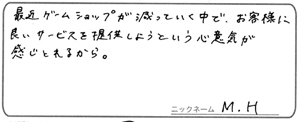 最近ゲームショップが減っていく中で、お客様に
良いサービスを提供しようという心意気が
感じとれるから。
ニックネーム M.H